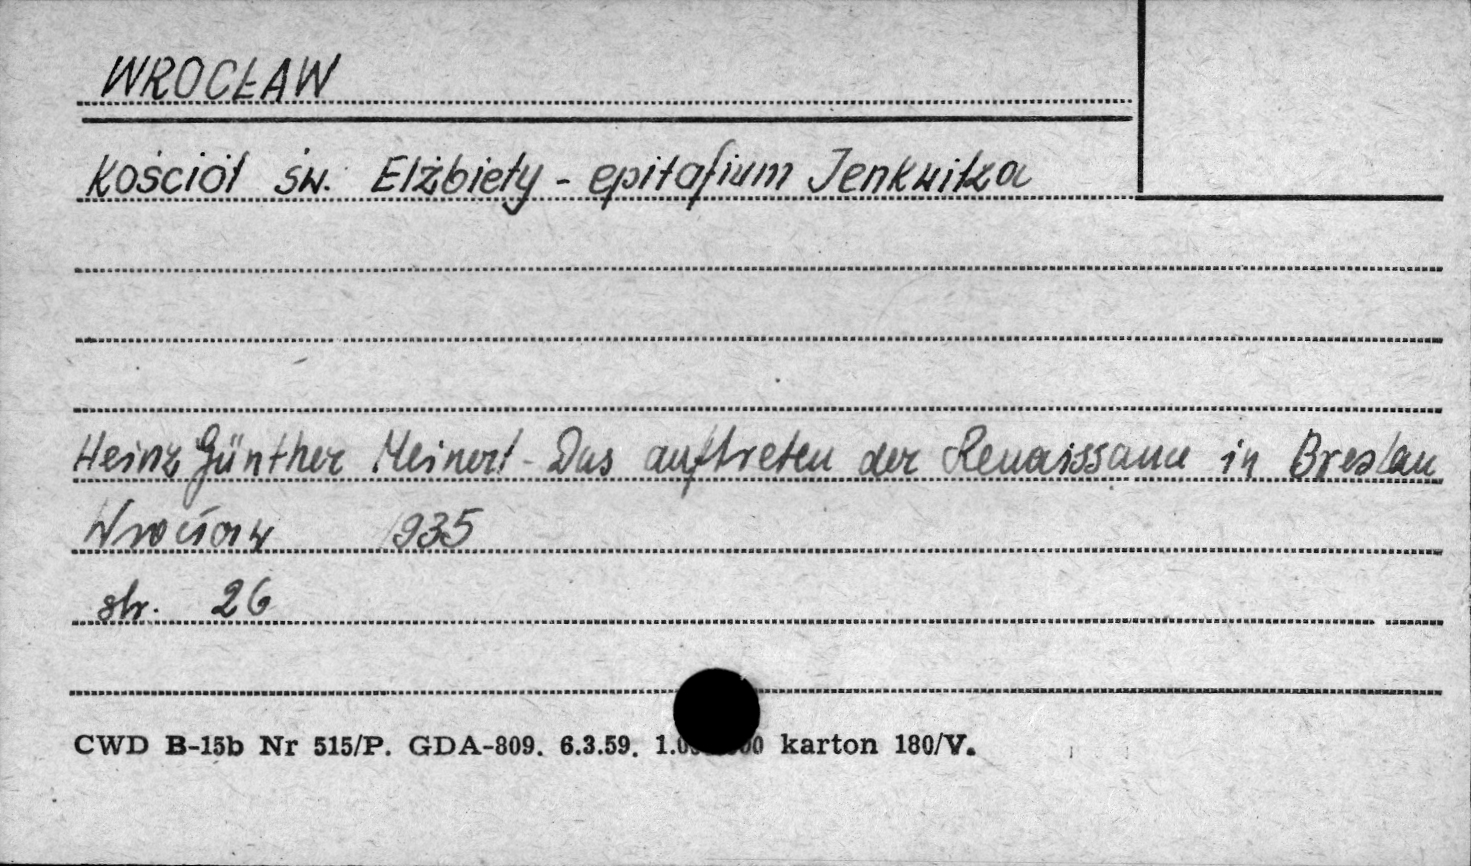 WROCŁAW
Kościół św. Elżbiety - epitafium Jenkwitza
Heinz Günther Meinert - Das auftreten der Renaissance in Breslau
Wrocław 1935
str. 26
CWD B-15b Nr 515/P. GDA-809. 6.3.59. karton 180/V.